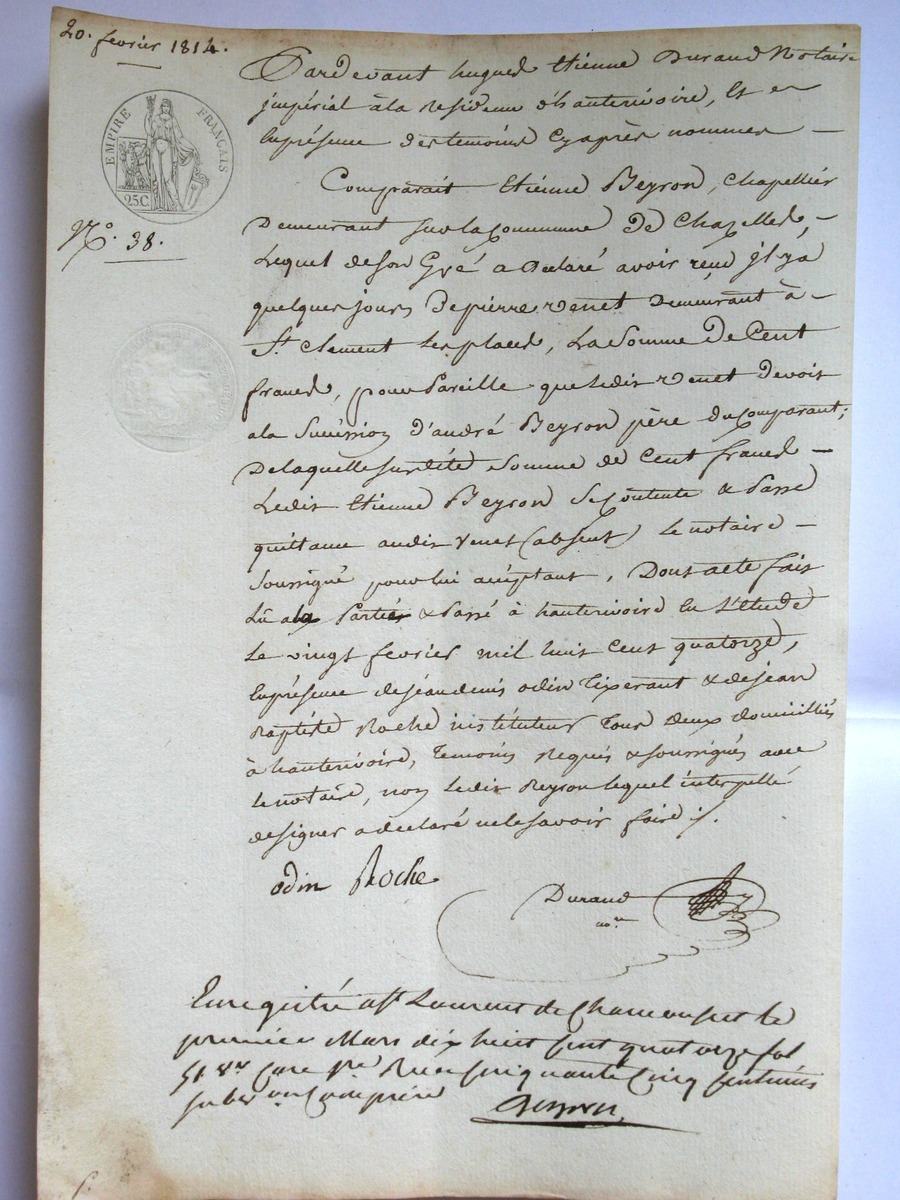 20. fevrier 1814.
EMPIRE FRANÇAIS
25C
N.o 38.
Pardevant hugues Etienne Durand Notaire
jmpérial àla Residence d'hauterivoire, Et en
Laprésence des temoins Cyaprès nommés
Comparait Etiénne Beyron, Chapellier
Demeurant sur la Commune De Chazelles,
Lequel de son Gré a declaré avoir reçu jl y a
quelques jours De pierre venet Demeurant à
St. Clement Les places, La Somme De Cent
francs, pour Pareille que Ledit venet devoit
a la Succéssion d'andré Beyron père du Comparant;
De laquelle susdité Somme de Cent francs
Ledit Etiéne Beyron Se Contente & Passe
quittance audit Venet (absent) Le notaire
Soussigné pour lui acceptant, Dont acte fait
Lû a la Partie & Passé à hauterivoire En L'etude
Le vingt fevrier mil huit Cent quatorze,
Enprésence de jéan denis odin Tixerant & de jean
Baptiste Roche instituteur Tous deux domiciliés
à hauterivoire, Temoins Requis & soussignés avec
Le notaire, non Ledit Beyron lequel interpellé
de signer a declaré ne le savoir faire ./.
odin Roche
Durand
no.re
Enregistré a St Laurent de Chamousset le
premier Mars dix huit cent quatorze fol
51 vo Case Reçu cinquante Cinq Centimes
subvon Comprise